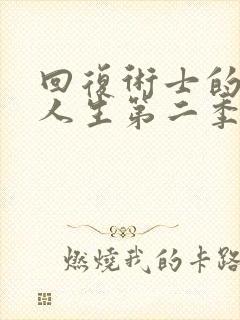 回復術士的
人生第二季
燃燒我的卡路